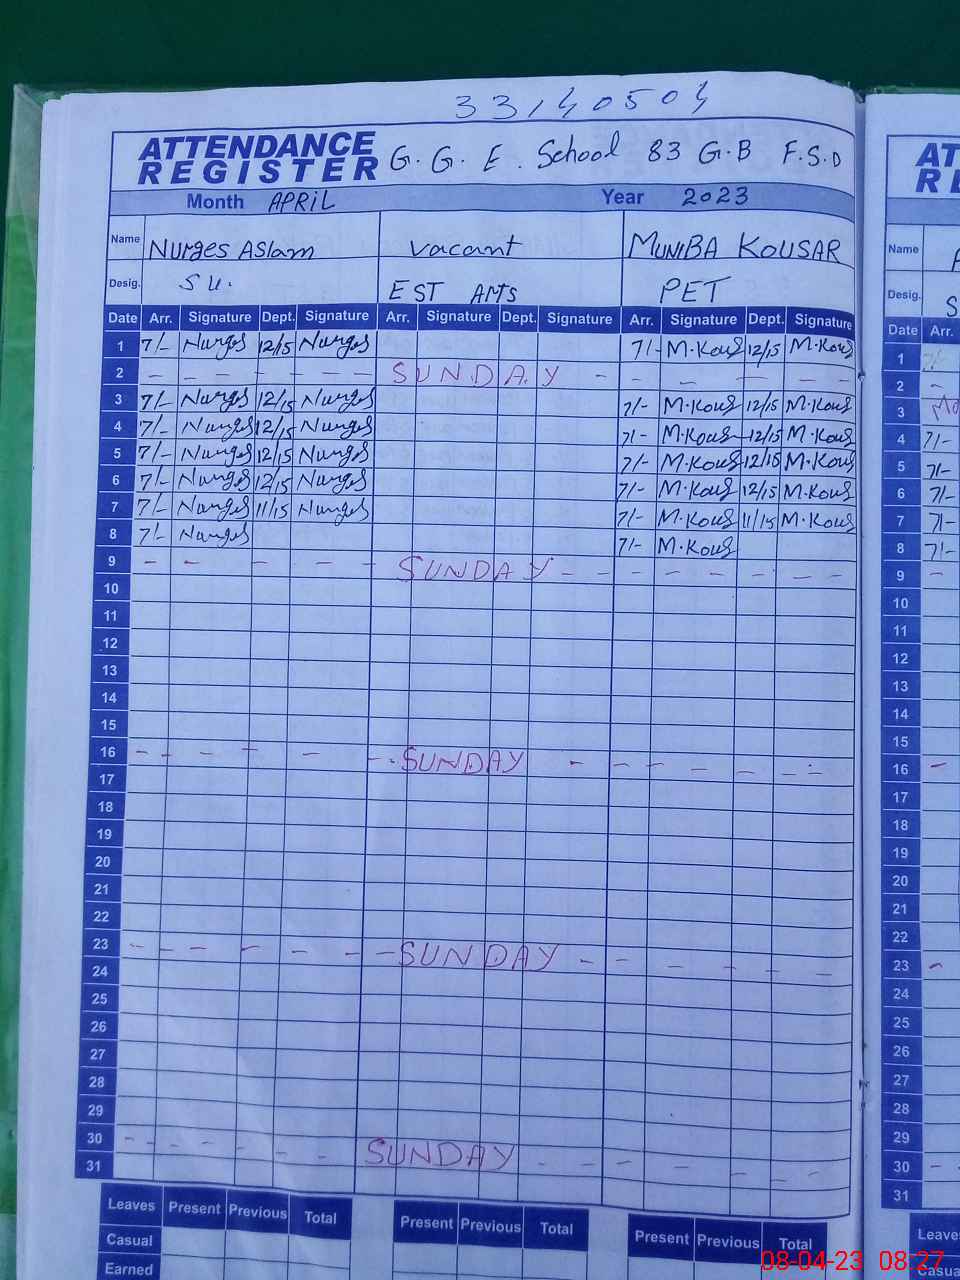 33140504
ATTENDANCE REGISTER G. G. E. School 83 G.B F.S.D
Month APRIL Year 2023
Name Nurges Aslam vacant MUNIBA KOUSAR Name
Desig. EST PET Desig. S
Date Arr. Signature Dept. Signature Arr. Signature Dept. Signature Arr. Signature Dept. Signature Date Arr.
1 7/- Nurges 12/15 Nurges 7/- M.Kous 12/15 M.Kous 1
2 - - - - - - - SUNDAY - - - - - - 2 -
3 7/- Nurges 12/15 Nurges 7/- M.Kous 12/15 M.Kous 3
4 7/- Nurges 12/15 Nurges 7/- M.Kous 12/15 M.Kous 4 7/-
5 7/- Nurges 12/15 Nurges 7/- M.Kous 12/15 M.Kous 5 7/-
6 7/- Nurges 12/15 Nurges 7/- M.Kous 12/15 M.Kous 6 7/-
7 7/- Nurges 11/15 Nurges 7/- M.Kous 11/15 M.Kous 7 7/-
8 7/- Nurges 7/- M.Kous 8 7/-
9 - - - - - - SUNDAY - - - - - - - - 9 -
10 10
11 11
12 12
13 13
14 14
15 15
16 - - - - - - SUNDAY - - - - - - - 16 -
17 17
18 18
19 19
20 20
21 21
22 22
23 - - - - - - - SUNDAY - - - - - - 23 -
24 24
25 25
26 26
27 27
28 28
29 29
30 - - - - - - SUNDAY - - - - - - - 30 - -
31 31
Leaves Present Previous Total Present Previous Total Present Previous Total Leaves
Casual Casual
Earned
08-04-23 08:27